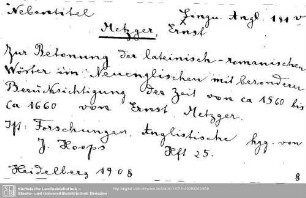 Nebentitel
Lingu. Angl. 191 v
Metzger, Ernst
Zur Betonung der lateinisch-romanischen
Wörter im Neuenglischen mit besonderer
Berücksichtigung der Zeit von ca 1560 bis
ca 1660 von Ernst Metzger.
Ift: Forschungen, Anglistische hgg. von
J. Hoops Hft 25.
Heidelberg 1908
8